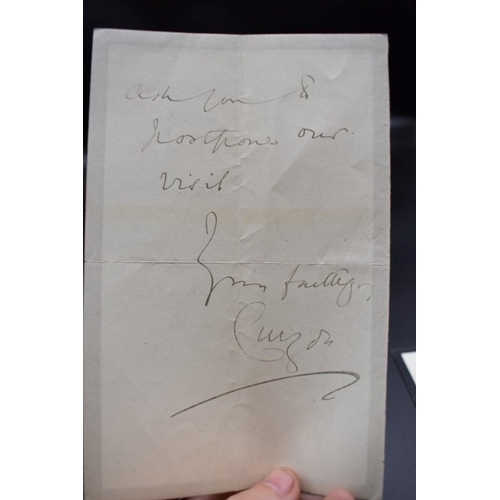 ask you to
postpone our
visit
Yours faithfully
Curzon